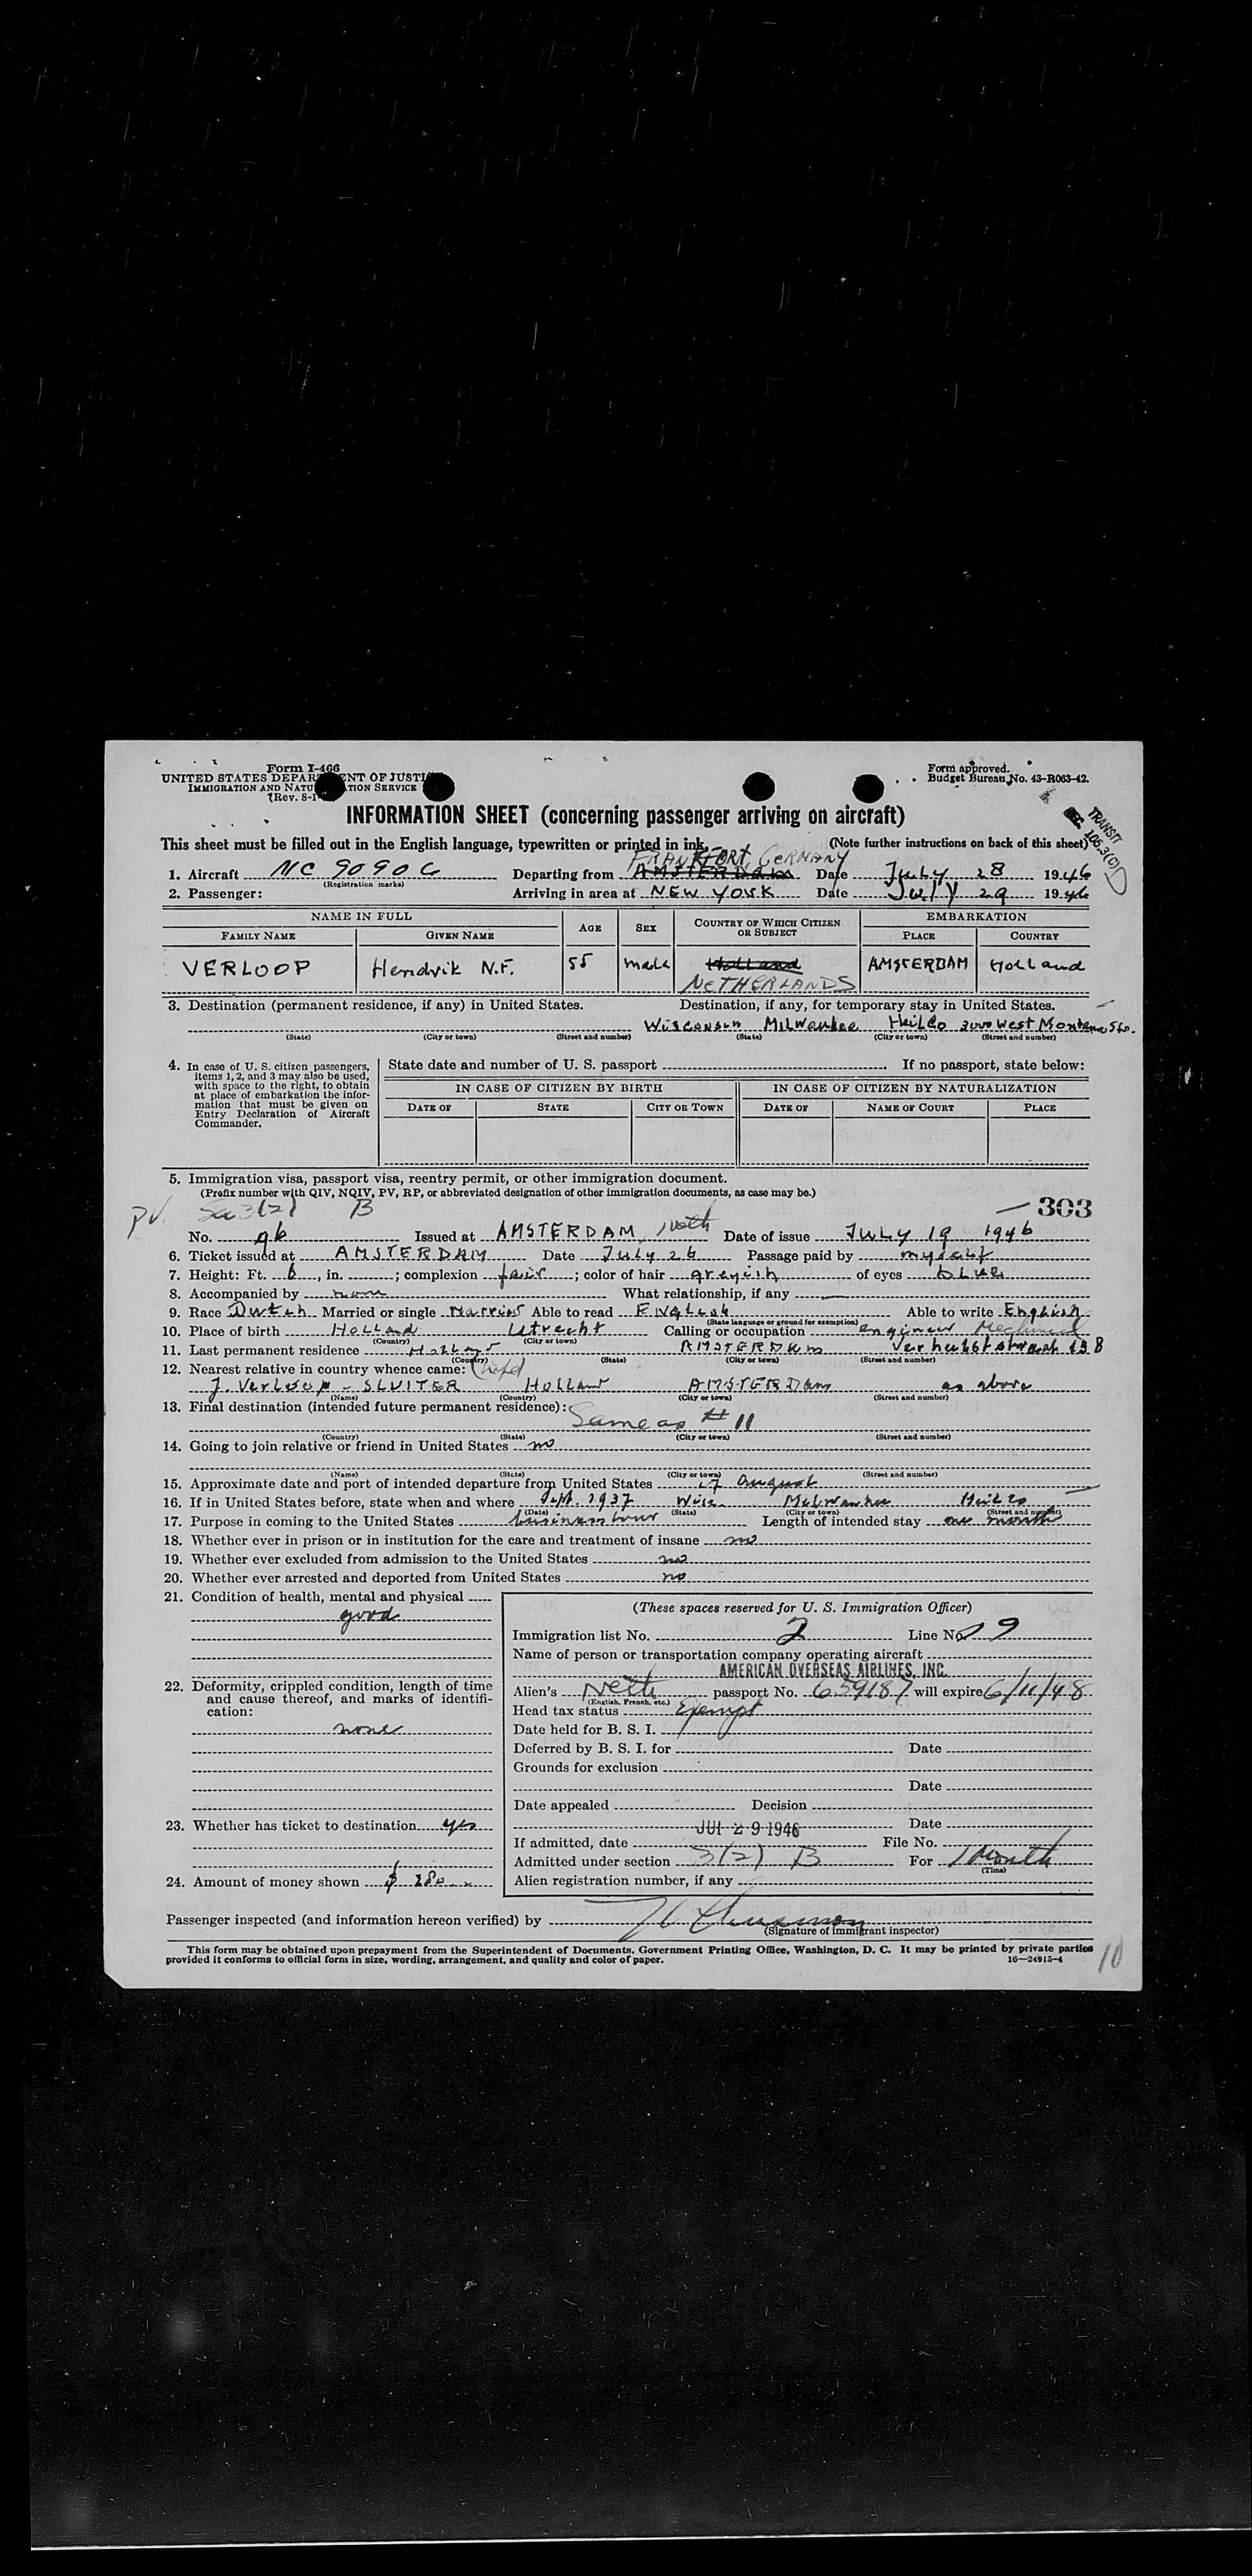 Form I-466
UNITED STATES DEPARTMENT OF JUSTICE
IMMIGRATION AND NATURALIZATION SERVICE
(Rev. 8-1-
Form approved.
Budget Bureau No. 43-R063-42.
TRANSIT
SEC. 105.3(D)
INFORMATION SHEET (concerning passenger arriving on aircraft)
This sheet must be filled out in the English language, typewritten or printed in ink. (Note further instructions on back of this sheet)
FRANKFORT GERMANY
1. Aircraft NC 90906 Departing from AMSTERDAM Date July 28 1946
(Registration marks)
2. Passenger: Arriving in area at NEW YORK Date July 29 1946
NAME IN FULL AGE SEX COUNTRY OF WHICH CITIZEN OR SUBJECT EMBARKATION
FAMILY NAME GIVEN NAME PLACE COUNTRY
VERLOOP Hendrik N.F. 55 male Holland AMSTERDAM Holland
NETHERLANDS
3. Destination (permanent residence, if any) in United States. Destination, if any, for temporary stay in United States.
Wisconsin Milwaukee HeilCo 3000 West Montana Str.
(State) (City or town) (Street and number) (State) (City or town) (Street and number)
4. In case of U. S. citizen passengers, items 1, 2, and 3 may also be used, with space to the right, to obtain at place of embarkation the information that must be given on Entry Declaration of Aircraft Commander.
State date and number of U. S. passport If no passport, state below:
IN CASE OF CITIZEN BY BIRTH IN CASE OF CITIZEN BY NATURALIZATION
DATE OF STATE CITY OR TOWN DATE OF NAME OF COURT PLACE
5. Immigration visa, passport visa, reentry permit, or other immigration document.
(Prefix number with QIV, NQIV, PV, RP, or abbreviated designation of other immigration documents, as case may be.)
PV Sec 3(2) B 303
No. 96 Issued at AMSTERDAM, Neth Date of issue JULY 19 1946
6. Ticket issued at AMSTERDAM Date July 26 Passage paid by myself
7. Height: Ft. 6, in. ; complexion fair ; color of hair greyish of eyes blue
8. Accompanied by none What relationship, if any —
9. Race Dutch Married or single Married Able to read English Able to write English
(State language or ground for exemption)
10. Place of birth Holland Utrecht Calling or occupation engineer Mechanical
(Country) (City or town)
11. Last permanent residence Holland AMSTERDAM Verhulststraat 13B
(Country) (State) (City or town) (Street and number)
12. Nearest relative in country whence came: (wife)
J. Verloop - SLUITER Holland AMSTERDam as above
(Name) (Country) (City or town) (Street and number)
13. Final destination (intended future permanent residence):
Same as # 11
(Country) (State) (City or town) (Street and number)
14. Going to join relative or friend in United States no
(Name) (State) (City or town) (Street and number)
15. Approximate date and port of intended departure from United States 27 August
16. If in United States before, state when and where Sept. 1937 Wisc. Milwaukee HeilCo
(Date) (State) (City or town) (Street and number)
17. Purpose in coming to the United States business tour Length of intended stay one month
18. Whether ever in prison or in institution for the care and treatment of insane no
19. Whether ever excluded from admission to the United States no
20. Whether ever arrested and deported from United States no
21. Condition of health, mental and physical
good
22. Deformity, crippled condition, length of time and cause thereof, and marks of identification:
none
23. Whether has ticket to destination yes
24. Amount of money shown $ 280
(These spaces reserved for U. S. Immigration Officer)
Immigration list No. 2 Line No. 9
Name of person or transportation company operating aircraft
AMERICAN OVERSEAS AIRLINES, INC.
Alien's Neth passport No. 659187 will expire 6/11/48
(English, French, etc.)
Head tax status Exempt
Date held for B. S. I.
Deferred by B. S. I. for Date
Grounds for exclusion
Date
Date appealed Decision
JUL 29 1946 Date
If admitted, date File No.
Admitted under section 3(2) B For 1 Month
(Time)
Alien registration number, if any
Passenger inspected (and information hereon verified) by
(Signature of immigrant inspector)
This form may be obtained upon prepayment from the Superintendent of Documents, Government Printing Office, Washington, D. C. It may be printed by private parties
provided it conforms to official form in size, wording, arrangement, and quality and color of paper. 16—24915-4
10